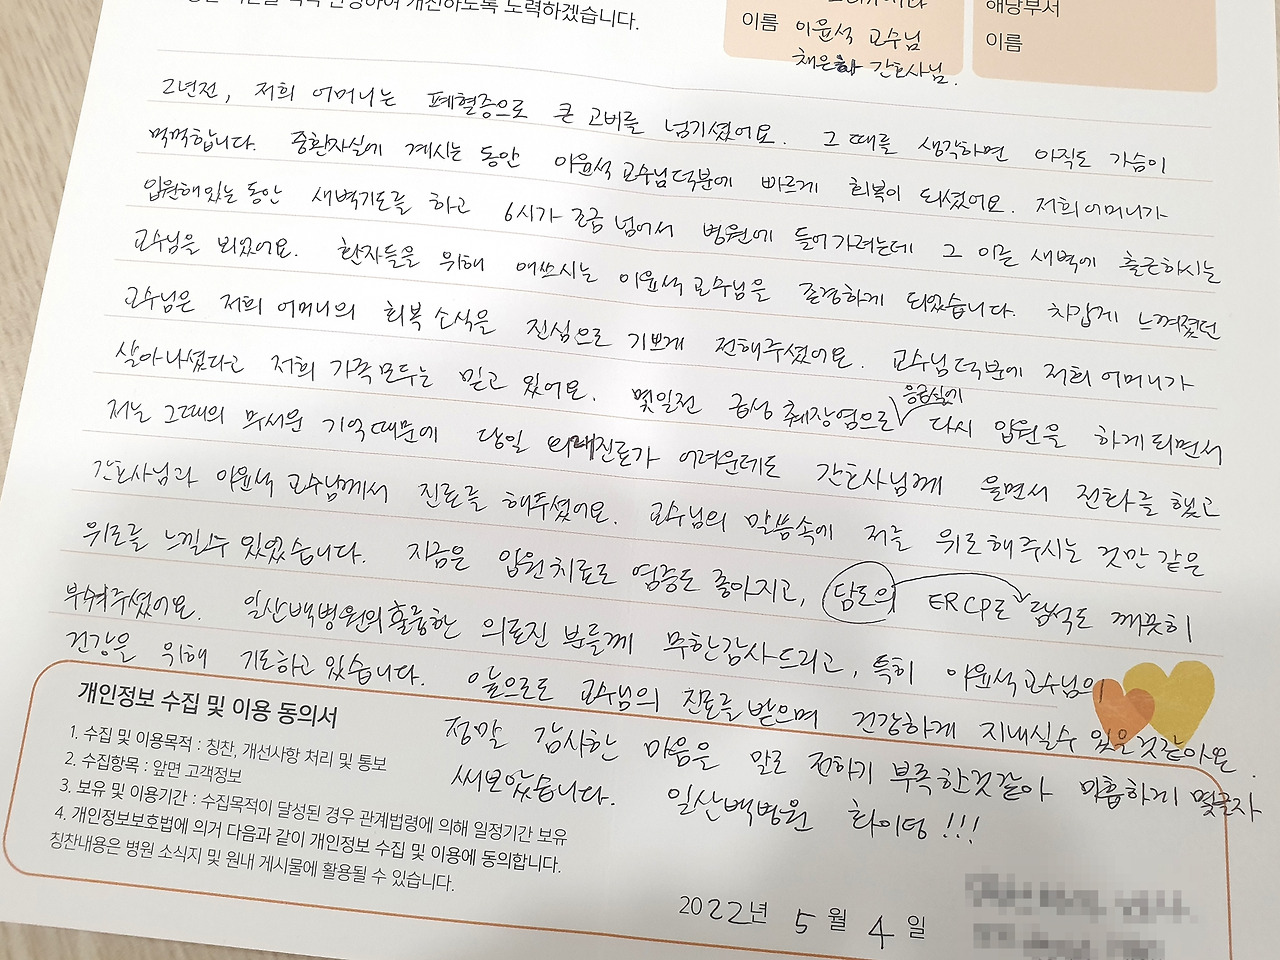 개선하도록 노력하겠습니다.
해당부서
이름 이윤석 교수님
이름
채은화 간호사님.
2년전, 저희 어머니는 폐혈증으로 큰 고비를 넘기셨어요. 그 때를 생각하면 아직도 가슴이
먹먹합니다. 중환자실에 계시는 동안 이윤석 교수님 덕분에 빠르게 회복이 되셨어요. 저희 어머니가
입원해 있는 동안 새벽기도를 하고 6시가 조금 넘어서 병원에 들어가려는데 그 이른 새벽에 출근하시는
교수님을 뵈었어요. 환자들을 위해 애쓰시는 이윤석 교수님을 존경하게 되었습니다. 차갑게 느껴졌던
교수님은 저희 어머니의 회복 소식을 진심으로 기쁘게 전해주셨어요. 교수님 덕분에 저희 어머니가
살아나셨다고 저희 가족 모두는 믿고 있어요. 몇일전 급성 췌장염으로 응급실에 다시 입원을 하게 되면서
저는 그때의 무서운 기억때문에 당일 외래진료가 어려운데도 간호사님께 울면서 전화를 했고
간호사님과 이윤석 교수님께서 진료를 해주셨어요. 교수님의 말씀속에 저를 위로해주시는 것만 같은
위로를 느낄 수 있었습니다. 지금은 입원치료로 염증도 좋아지고, 담도의 ERCP로 담석도 깨끗히
부숴주셨어요. 일산백병원의 훌륭한 의료진 분들께 무한감사드리고, 특히 이윤석교수님의
건강을 위해 기도하고 있습니다. 앞으로도 교수님의 진료를 받으며 건강하게 지내실수 있을것 같아요.
정말 감사한 마음을 말로 전하기 부족한것 같아 미흡하게 몇글자
써보았습니다. 일산백병원 화이팅!!!
개인정보 수집 및 이용 동의서
1. 수집 및 이용목적 : 칭찬, 개선사항 처리 및 통보
2. 수집항목 : 앞면 고객정보
3. 보유 및 이용기간 : 수집목적이 달성된 경우 관계법령에 의해 일정기간 보유
4. 개인정보보호법에 의거 다음과 같이 개인정보 수집 및 이용에 동의합니다.
칭찬내용은 병원 소식지 및 원내 게시물에 활용될 수 있습니다.
2022년 5월 4일